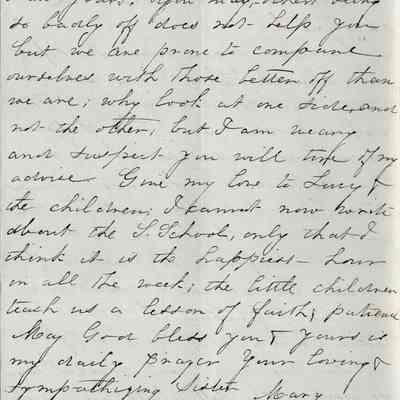 than yours, you may others being
so badly off does not help you
but we are prone to compare
ourselves with those better off than
we are; why look at one side, and
not the other, but I am weary
and suspect you will tire of my
advice Give my love to Lucy &
the children; I cannot now write
about the S. School, only that I
think it is the happiest hour
in all the week; the little children
teach us a lesson of faith & patience
May God bless you & yours is
my daily prayer Your loving &
sympathizing Sister
Mary